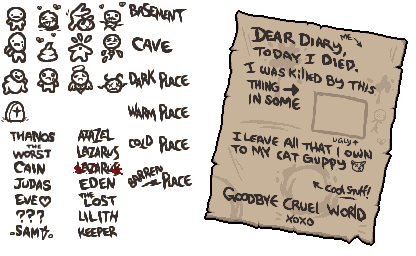 BASEMENT
CAVE
DARK PLACE
WARM PLACE
COLD PLACE
BARREN PLACE
THANOS
THE WORST
CAIN
JUDAS
EVE♡
???
-SAM-
AZAZEL
LAZARUS
LAZARUS
EDEN
THE LOST
LILITH
KEEPER
DEAR DIARY,
TODAY I DIED.
ME
I WAS KILLED BY THIS
THING →
IN SOME
UGLY
I LEAVE ALL THAT I OWN
TO MY CAT GUPPY
COOL STUFF!
GOODBYE CRUEL WORLD
XOXO